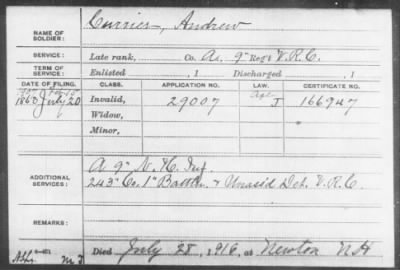 NAME OF SOLDIER: Currier, Andrew
SERVICE: Late rank, Co. A, 9" Reg't V.R.C.
TERM OF SERVICE: Enlisted , 1 Discharged , 1
DATE OF FILING. CLASS. APPLICATION NO. LAW. CERTIFICATE NO.
1863 July 20 Invalid, 29007 J 166947
Widow,
Minor,
A 9" N.H. Inf.
ADDITIONAL SERVICES: 243" Co. 1" Battn. & Unassd Det. V.R.C.
REMARKS:
Died July 28, 1916, at Newton N.H.